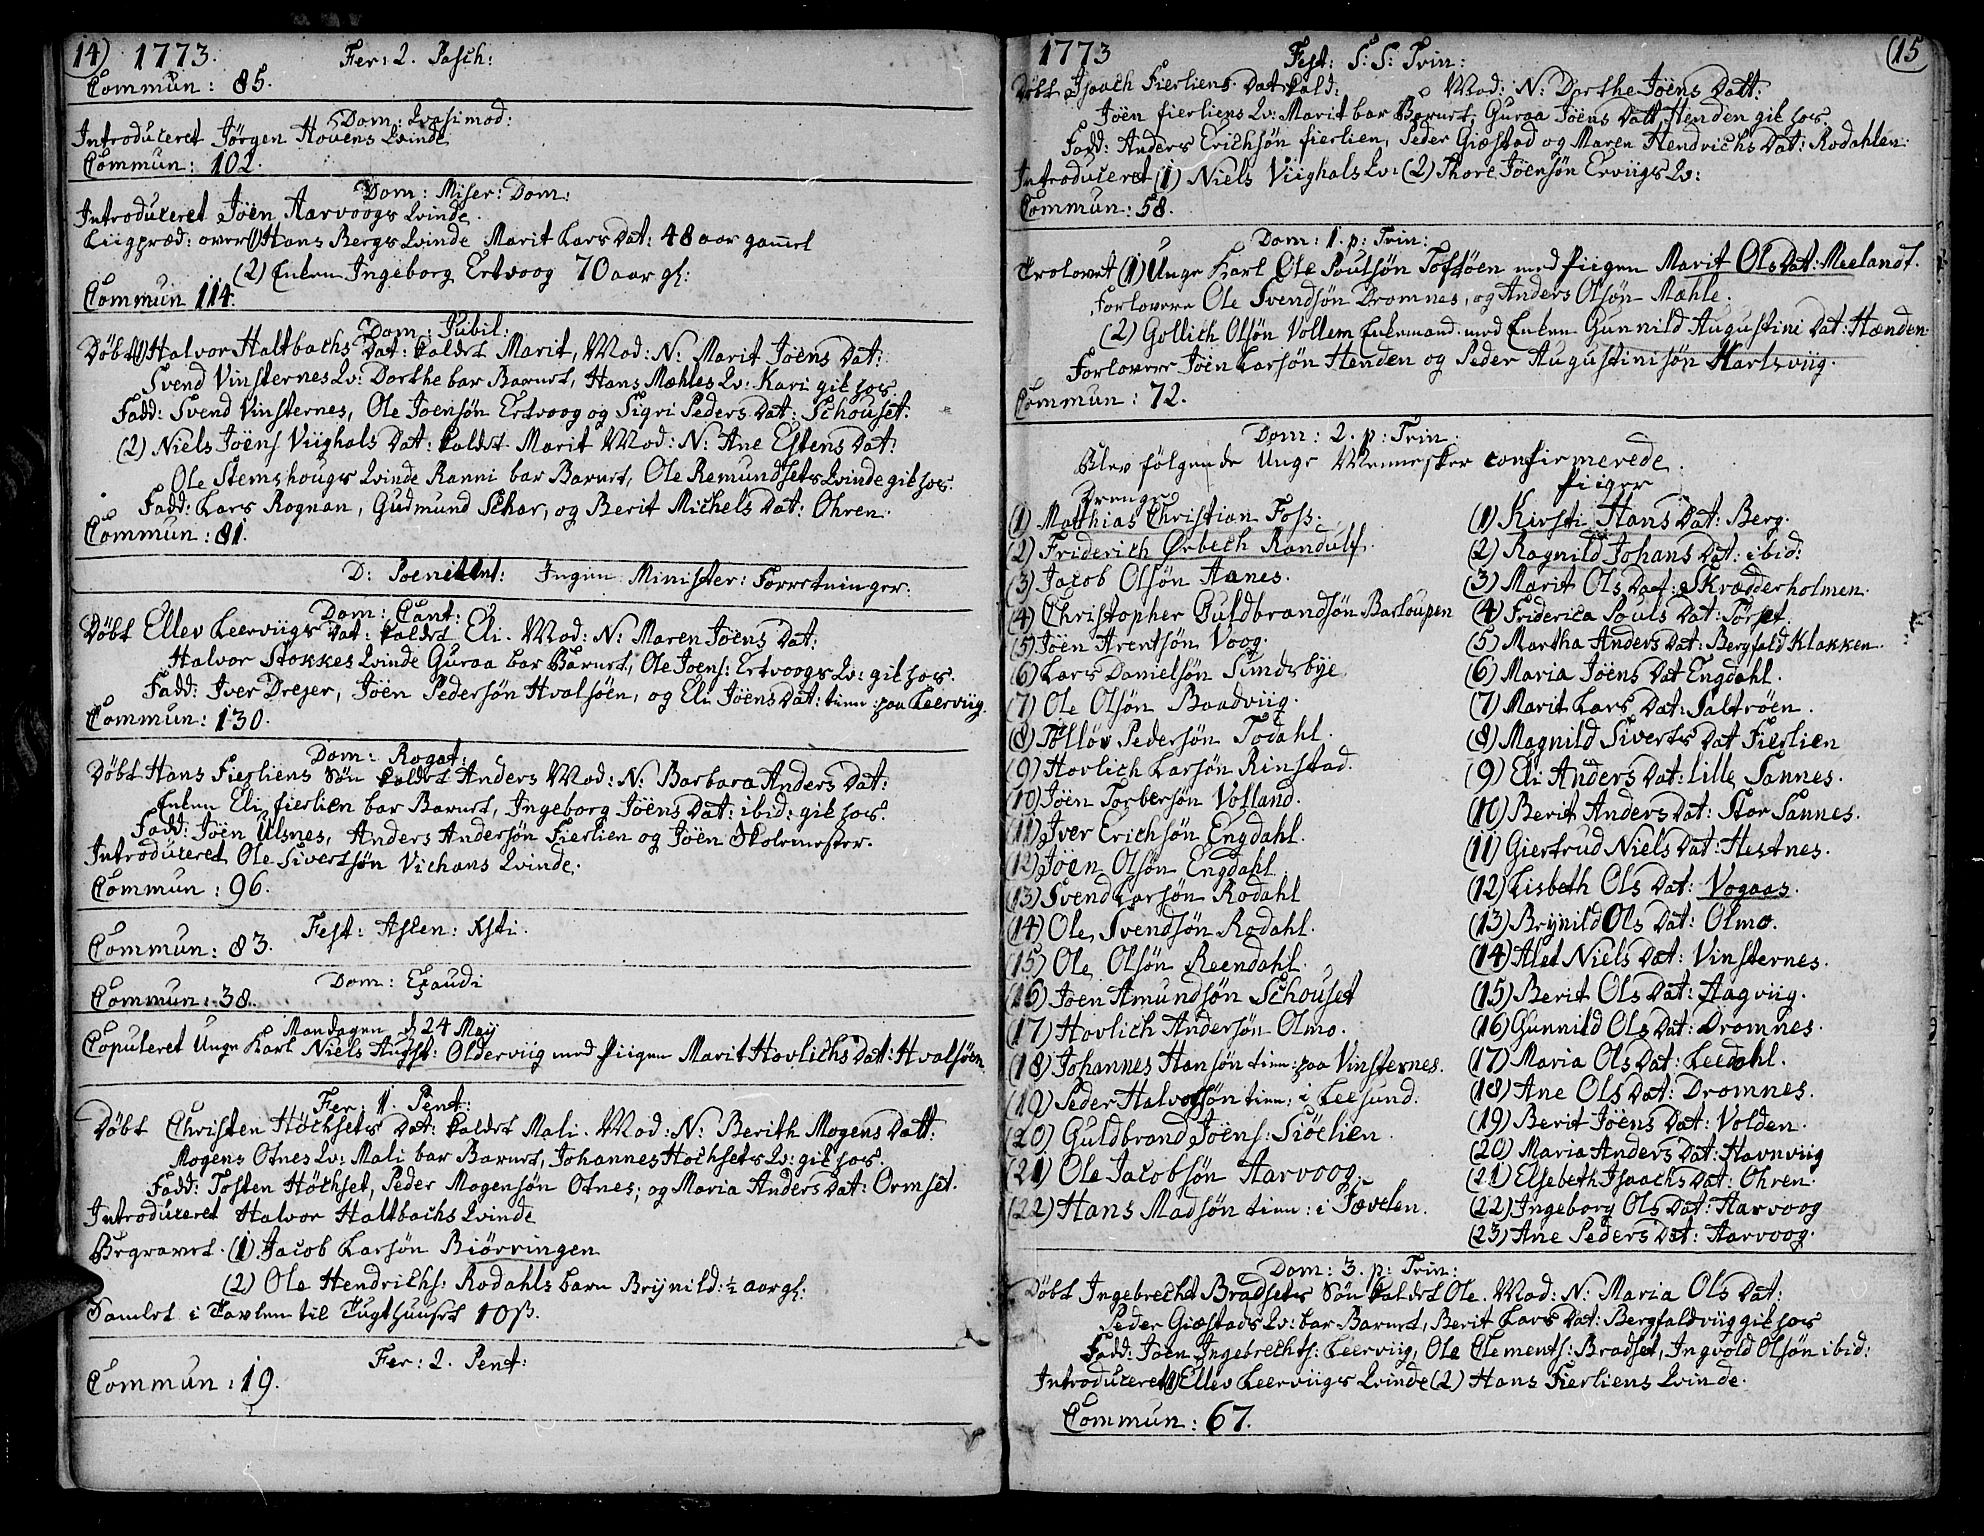 14) 1773. Fer: 2. Pasch:
Commun: 85.
Dom: Qvasimod:
Introduceret Jørgen Hovens Qvinde
Commun: 102.
Dom: Miser: Dom:
Introduceret Jöen Aarvoogs Qvinde.
Liigpræd: over (1) Hans Bergs Qvinde Marit Lars Dat: 48 aar gamel
(2) Enken Ingeborg Ertvoog 70 aar gl:
Commun 114.
Dom: Jubil:
Döbt (1) Halvor Haltbachs Dat: kaldet Marit, Mod: N: Marit Jöens Dat:
Svend Vinsternes Qv: Dorthe bar Barnet, Hans Mæhles Qv: Kari gik hos.
Fadd: Svend Vinsternes, Ole Joensön Ertvoog og Sigri Peders Dat: Schouset.
(2) Niels Jöens Viighals Dat: kaldet Marit Mod: N: Ane Estens Dat:
Ole Stemshougs Qvinde Ranni bar Barnet, Ole Remundsets Qvinde gik hos.
Fadd: Lars Rognan, Gudmund Schar, og Berit Michels Dat: Ohren.
Commun: 81.
D: Poenitent: Ingen Minister: Forretninger.
Dom: Cant:
Döbt Ellev Leerviigs Dat: kaldet Eli. Mod: N: Maren Jöens Dat:
Halvor Stokkes Qvinde Guraa bar Barnet, Ole Joens: Ertvoogs Qv: gik hos.
Fadd: Iver Drejer, Jöen Pedersön Hvalsöen, og Eli Jöens Dat: tien: paa Leerviig.
Commun: 130.
Dom: Rogat:
Döbt Hans Fierliens Sön kaldet Anders Mod: N: Barbara Anders Dat:
Enken Eli fierlien bar Barnet, Ingeborg Jöens Dat: ibid: gik hos.
Fadd: Jöen Ulsnes, Anders Andersön Fierlien og Jöen Skolemester.
Introduceret Ole Sivertsön Vichans Qvinde.
Commun: 96.
Fest: Ascen: Xsti.
Commun: 83.
Dom: Exaudi
Commun: 38.
Mandagen d 24 May
Copuleret Unge Karl Niels Augst: Olderviig med Piigen Marit Hovlichs Dat: Hvalsöen
Fer: 1. Pent:
Döbt Christen Höchsets Dat: kaldet Mali. Mod: N: Berith Mogens Datt:
Mogens Otnes Qv: Mali bar Barnet, Johannes Hochsets Qv: gik hos.
Fadd: Tosten Höchset, Peder Mogensön Otnes, og Maria Anders Dat: Ormset.
Introduceret Halvor Haltbachs Qvinde
Begravet. (1) Jacob Larsön Biörringen
(2) Ole Hendrichs: Rodahls barn Brÿnild: ½ aar gl:
Samlet i Tavlen til Tugthuuset 10 ß.
Fer: 2. Pent:
Commun: 19.
1773 Fest: S: S: Trin: 15
Döbt Isaach Fierliens Dat kald: Mod: N: Dorthe Jöens Datt:
Jöen fierliens Qv: Marit bar Barnet, Guraa Jöens Datt Henden gik hos.
Fadd: Anders Erichsön fierlien, Peder Giæstad og Maren Hendrichs Dat: Rodahlen:
Introduceret (1) Niels Viighals Qv: (2) Thore Joensön Erviigs Qv:
Commun: 58.
Dom: 1. p: Trin:
Trolovet (1) Unge Karl Ole Poulsön Toftöen med Piigen Marit Ols Dat: Meelandt.
Forlovere Ole Svendsön Dromnes, og Anders Olsön Mæhle.
(2) Gollich Olsön Vollem Enkemand med Enken Gunnild Augustini Dat: Hænden
Forlovere Jöen Larsön Henden og Peder Augustinisön Karlsviig.
Commun: 72.
Dom: 2. p: Trin:
Blev fölgende Unge Mennesker confirmerede.
Drenge
(1) Matthias Christian Foss.
(2) Friderich Ørbech Randulf.
(3) Jacob Olsön Aanes.
(4) Christopher Guldbrandsön Barloupen
(5) Jöen Arentsön Voog.
(6) Lars Danielsön Sundsbye.
(7) Ole Olsön Baadviig.
(8) Tölløv Pedersön Todahl.
(9) Hovlich Larsön Rinstad.
(10) Jöen Torbersön Volland.
(11) Iver Erichsön Engdahl.
(12) Jöen Olsön Engdahl
(13) Svend Larsön Rodahl
(14) Ole Svendsön Rodahl.
(15) Ole Olsön Reendahl.
(16) Joen Amundsön Schouset
(17) Hovlich Andersön Olmo.
(18) Johannes Hansön tien: paa Vinsternes.
(19) Peder Halvorsön tien: i Leesund.
(20) Guldbrand Jöens: Siöelien.
(21) Ole Jacobsön Aarvoog.
(22) Hans Madsön tien: i Tævelen.
Piiger
(1) Kirsti Hans Dat: Berg.
(2) Ragnild Johans Dat. ibid:
(3) Marit Ols Daat: Skrædderholmen.
(4) Friderica Pouls Dat: Torset.
(5) Martha Anders Dat: Bergfald Klakken.
(6) Maria Jöens Dat Engdahl.
(7) Marit Lars Dat: Saltröen.
(8) Magnild Siverts Dat Fierlien
(9) Eli Anders Dat: Lille Sannes.
(10) Berit Anders Dat: Stor Sannes.
(11) Giertrud Niels Dat: Hestnes.
(12) Lisbeth Ols Dat: Vogaas.
(13) Brÿnild Ols Dat: Olmo.
(14) Alet Niels Dat: Vinsternes.
(15) Berit Ols Dat: Hagviig.
(16) Gunnild Ols Dat: Dromnes.
(17) Maria Ols Dat: Leedahl.
(18) Ane Ols Dat: Dromnes.
(19) Berit Jöens Dat: Volden.
(20) Maria Anders Dat: Havnviig
(21) Elsebeth Isaachs Dat: Ohren.
(22) Ingeborg Ols Dat: Aarvoog
(23) Ane Peders Dat: Aarvoog.
Dom: 3. p: Trin:
Döbt Ingebrecht Bradsets Sön kaldet Ole. Mod: N: Maria Ols Dat:
Peder Giæstads Qv: bar Barnet, Berit Lars Dat: Bergfaldviig gik hos
Fadd: Joen Ingebrechts: Leerviig, Ole Clements: Bradset, Ingvold Olsön ibid:
Introduceret (1) Ellev Leerviigs Qvinde (2) Hans Fierliens Qvinde.
Commun: 67.